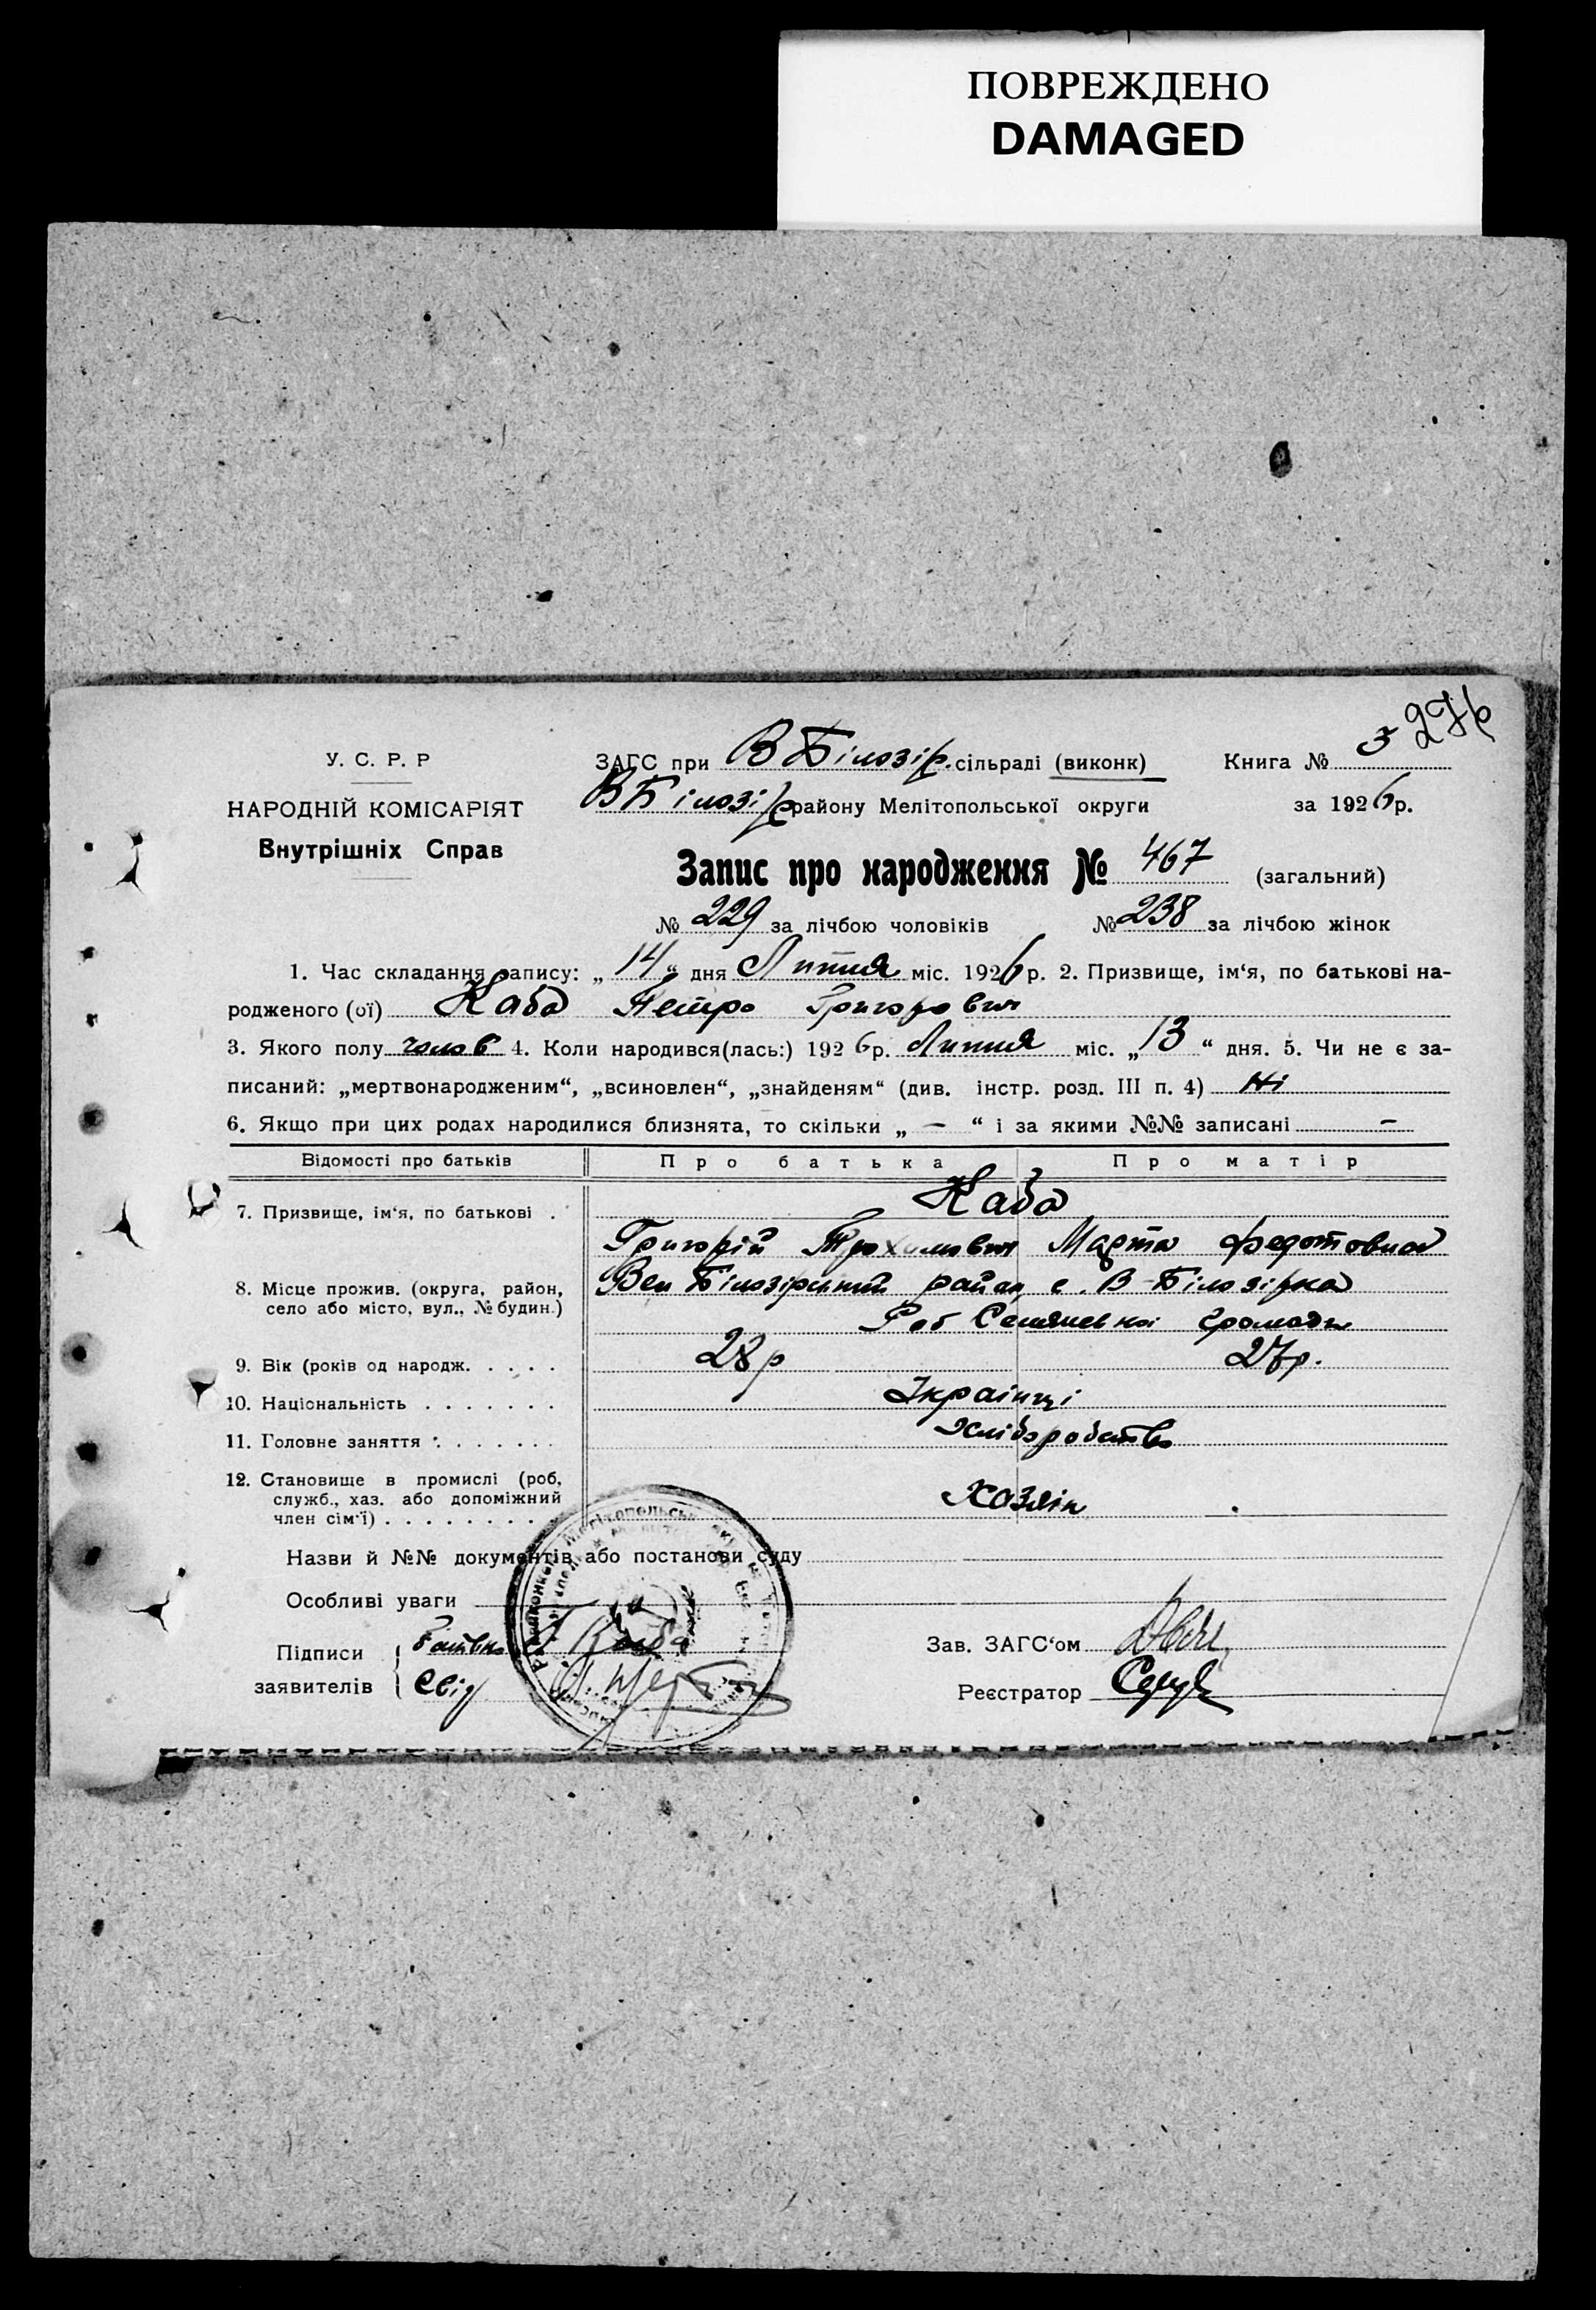 ПОВРЕЖДЕНО
DAMAGED
276
У. С. Р. Р
ЗАГС при В Білозір. сільраді (виконк)
Книга № 3
НАРОДНІЙ КОМІСАРІЯТ
В Білозір району Мелітопольської округи
за 1926 р.
Внутрішніх Справ
Запис про народження № 467 (загальний)
№ 229 за лічбою чоловіків № 238 за лічбою жінок
1. Час складання запису: „14“ дня Липня міс. 1926 р. 2. Призвище, ім‘я, по батькові на-
родженого (ої) Каба Петро Григорович
3. Якого полу чолов 4. Коли народився(лась:) 1926 р. Липня міс. „13“ дня. 5. Чи не є за-
писаний: „мертвонародженим“, „всиновлен“, „знайденям“ (див. інстр. розд. III п. 4) Ні
6. Якщо при цих родах народилися близнята, то скільки „ — “ і за якими №№ записані —
Відомості про батьків
Про батька
Про матір
7. Призвище, ім‘я, по батькові .
Каба
Григорій Трохимович Марта Федотовна
8. Місце прожив. (округа, район,
село або місто, вул., № будин.)
Вел Білозірський район с. В-Білозірка
громади
9. Вік (років од народж. . . . .
28 р
27 р.
10. Національність . . . . . . .
Українці
11. Головне заняття . . . . . . .
Хліборобство
12. Становище в промислі (роб.
служб., хаз. або допоміжний
член сім‘ї) . . . . . . . .
Хазяін
Назви й №№ документів або постанови суду
Особливі уваги
Підписи
заявителів
Батько Г Каба
Свід
Зав. ЗАГС‘ом
Реєстратор